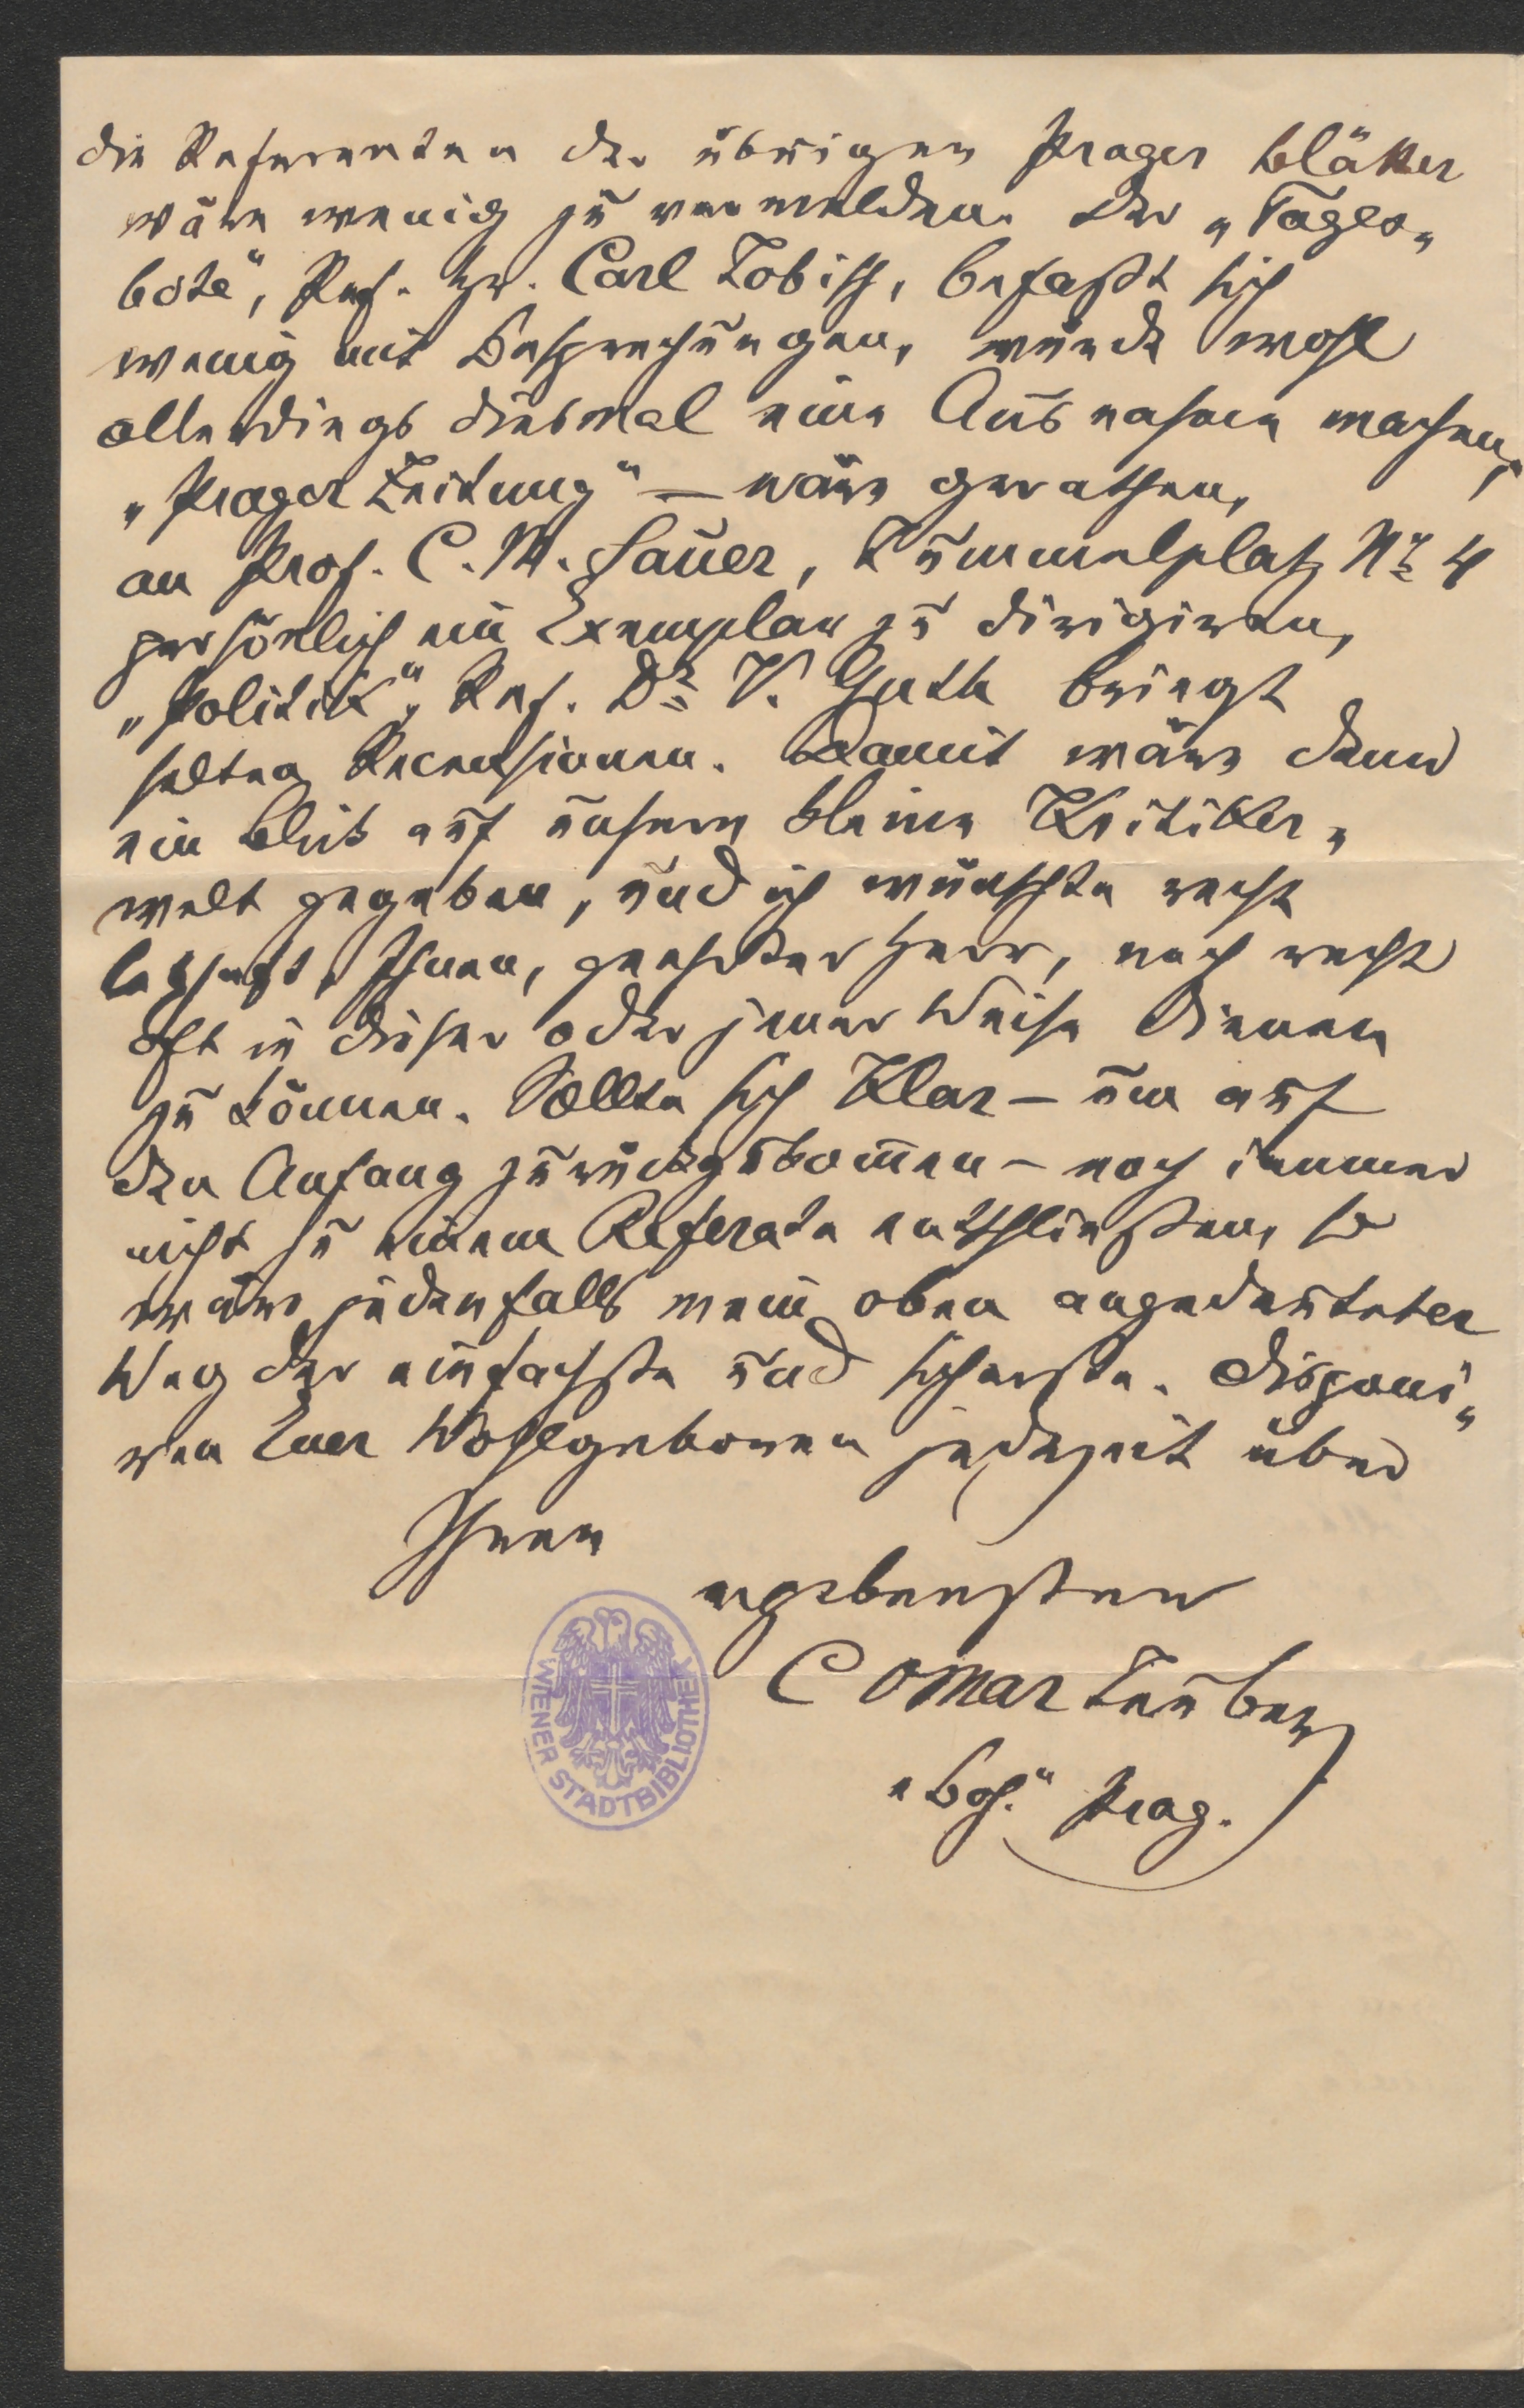 die Referenten der übrigen Prager Blätter
wäre wenig zu vermelden. Der „Tages„
bote", Ref. Hr. Carl Tobisch, befaßt sich
wenig mit Besprechungen, würde wohl
allerdings diesmal eine Ausnahme machen,
„Prager Zeitung" – wäre gerathen,
an Prof. C. M. Sauer, Tummelplatz No 4
persönlich ein Exemplar zu dirigiren,
„Politik", Ref. Dr V. Guth bringt
selten Recensionen. Damit wäre denn
ein Blick auf unsere kleine Kritiker„
welt gegeben, und ich wünschte recht
lebhaft, Ihnen, geehrter Herr, noch recht
oft in dieser oder jener Weise dienen
zu können. Sollte sich Klar – um auf
den Anfang zurückzukom̅en – noch immer
nicht zu einem Referate entschließen, so
wäre jedenfalls mein oben angedeuteter
Weg der einfachste und sicherste. Disponi„
ren Euer Wohlgeboren jederzeit über
Ihren
ergebensten
C Omar Teuber
„Boh." Prag.
WIENER STADTBIBLIOTHEK